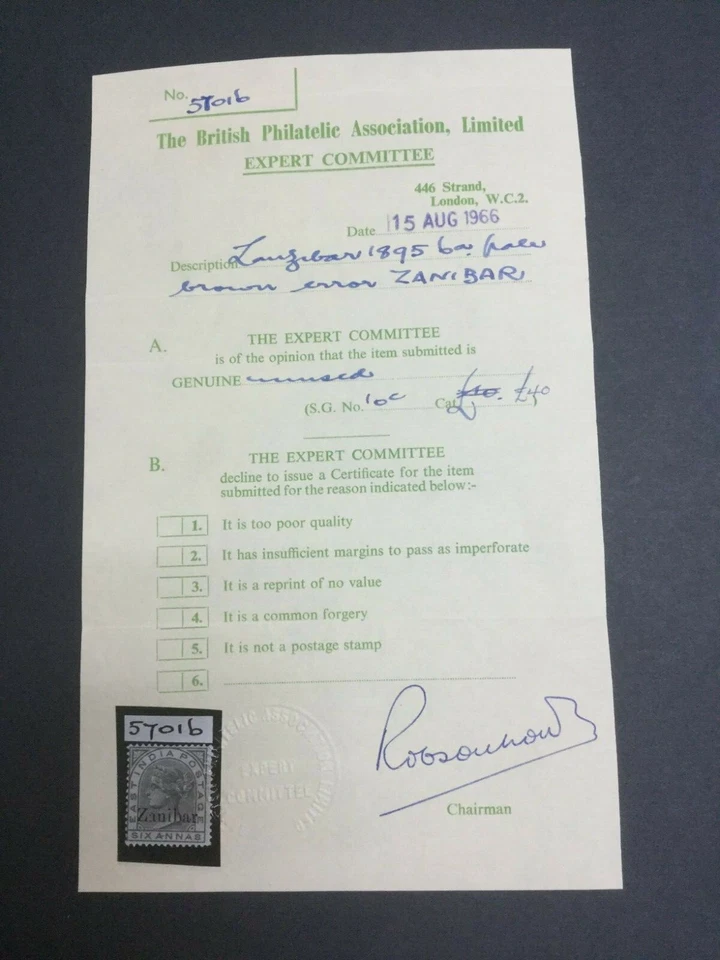 No. 57016
The British Philatelic Association, Limited
EXPERT COMMITTEE
446 Strand,
London, W.C.2.
Date 15 AUG 1966
Description Zanzibar 1895 6a pale
brown error ZANIBAR
A. THE EXPERT COMMITTEE
is of the opinion that the item submitted is
GENUINE unused
(S.G. No. 10c Cat £10. £40
B. THE EXPERT COMMITTEE
decline to issue a Certificate for the item
submitted for the reason indicated below:-
1. It is too poor quality
2. It has insufficient margins to pass as imperforate
3. It is a reprint of no value
4. It is a common forgery
5. It is not a postage stamp
6.
57016
EAST INDIA POSTAGE
Zanibar
SIX ANNAS
EXPERT
COMMITTEE
Chairman